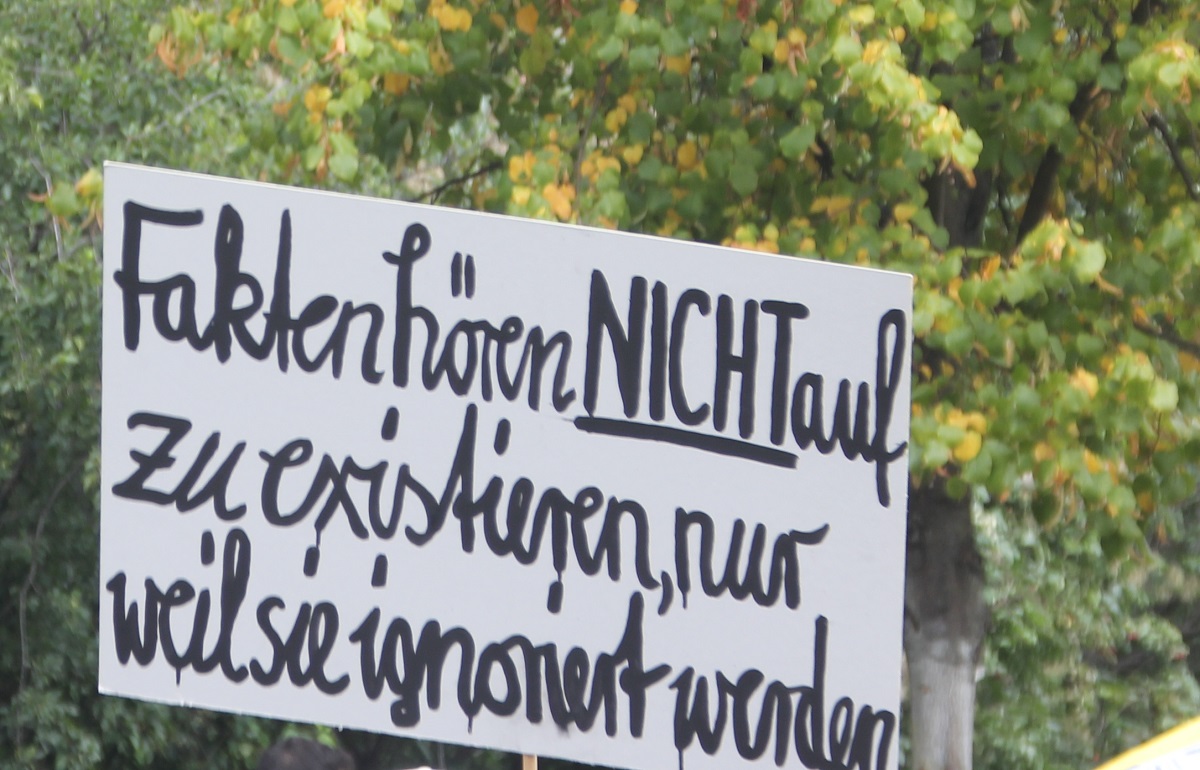 Fakten hören NICHT auf
zu existieren, nur
weil sie ignoriert werden